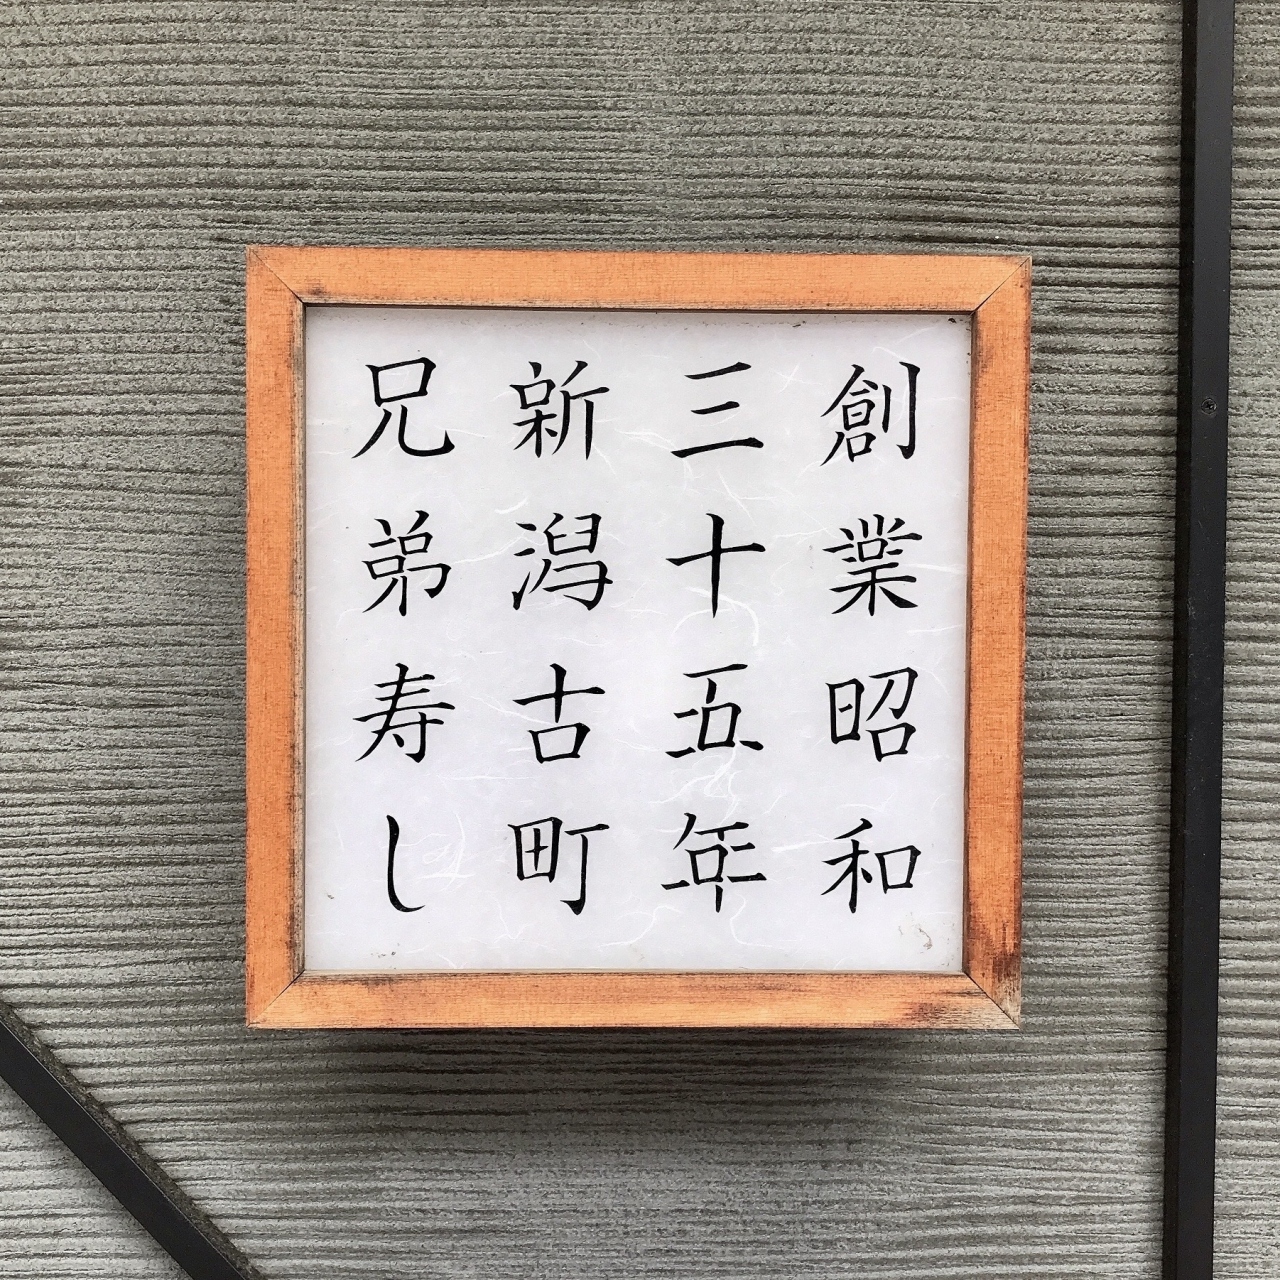 創業昭和
三十五年
新潟古町
兄弟寿し